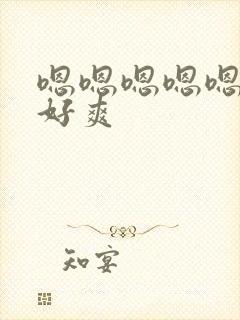 嗯嗯嗯嗯嗯
好爽
知宴